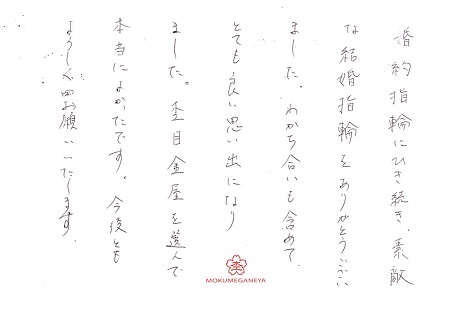 婚約指輪にひき続き、素敵
な結婚指輪をありがとうござい
ました。わかち合いも含めて、
とても良い思い出になり
ました。杢目金屋を選んで
本当によかったです。今後とも
よろしくお願いいたします。
杢
MOKUMEGANEYA